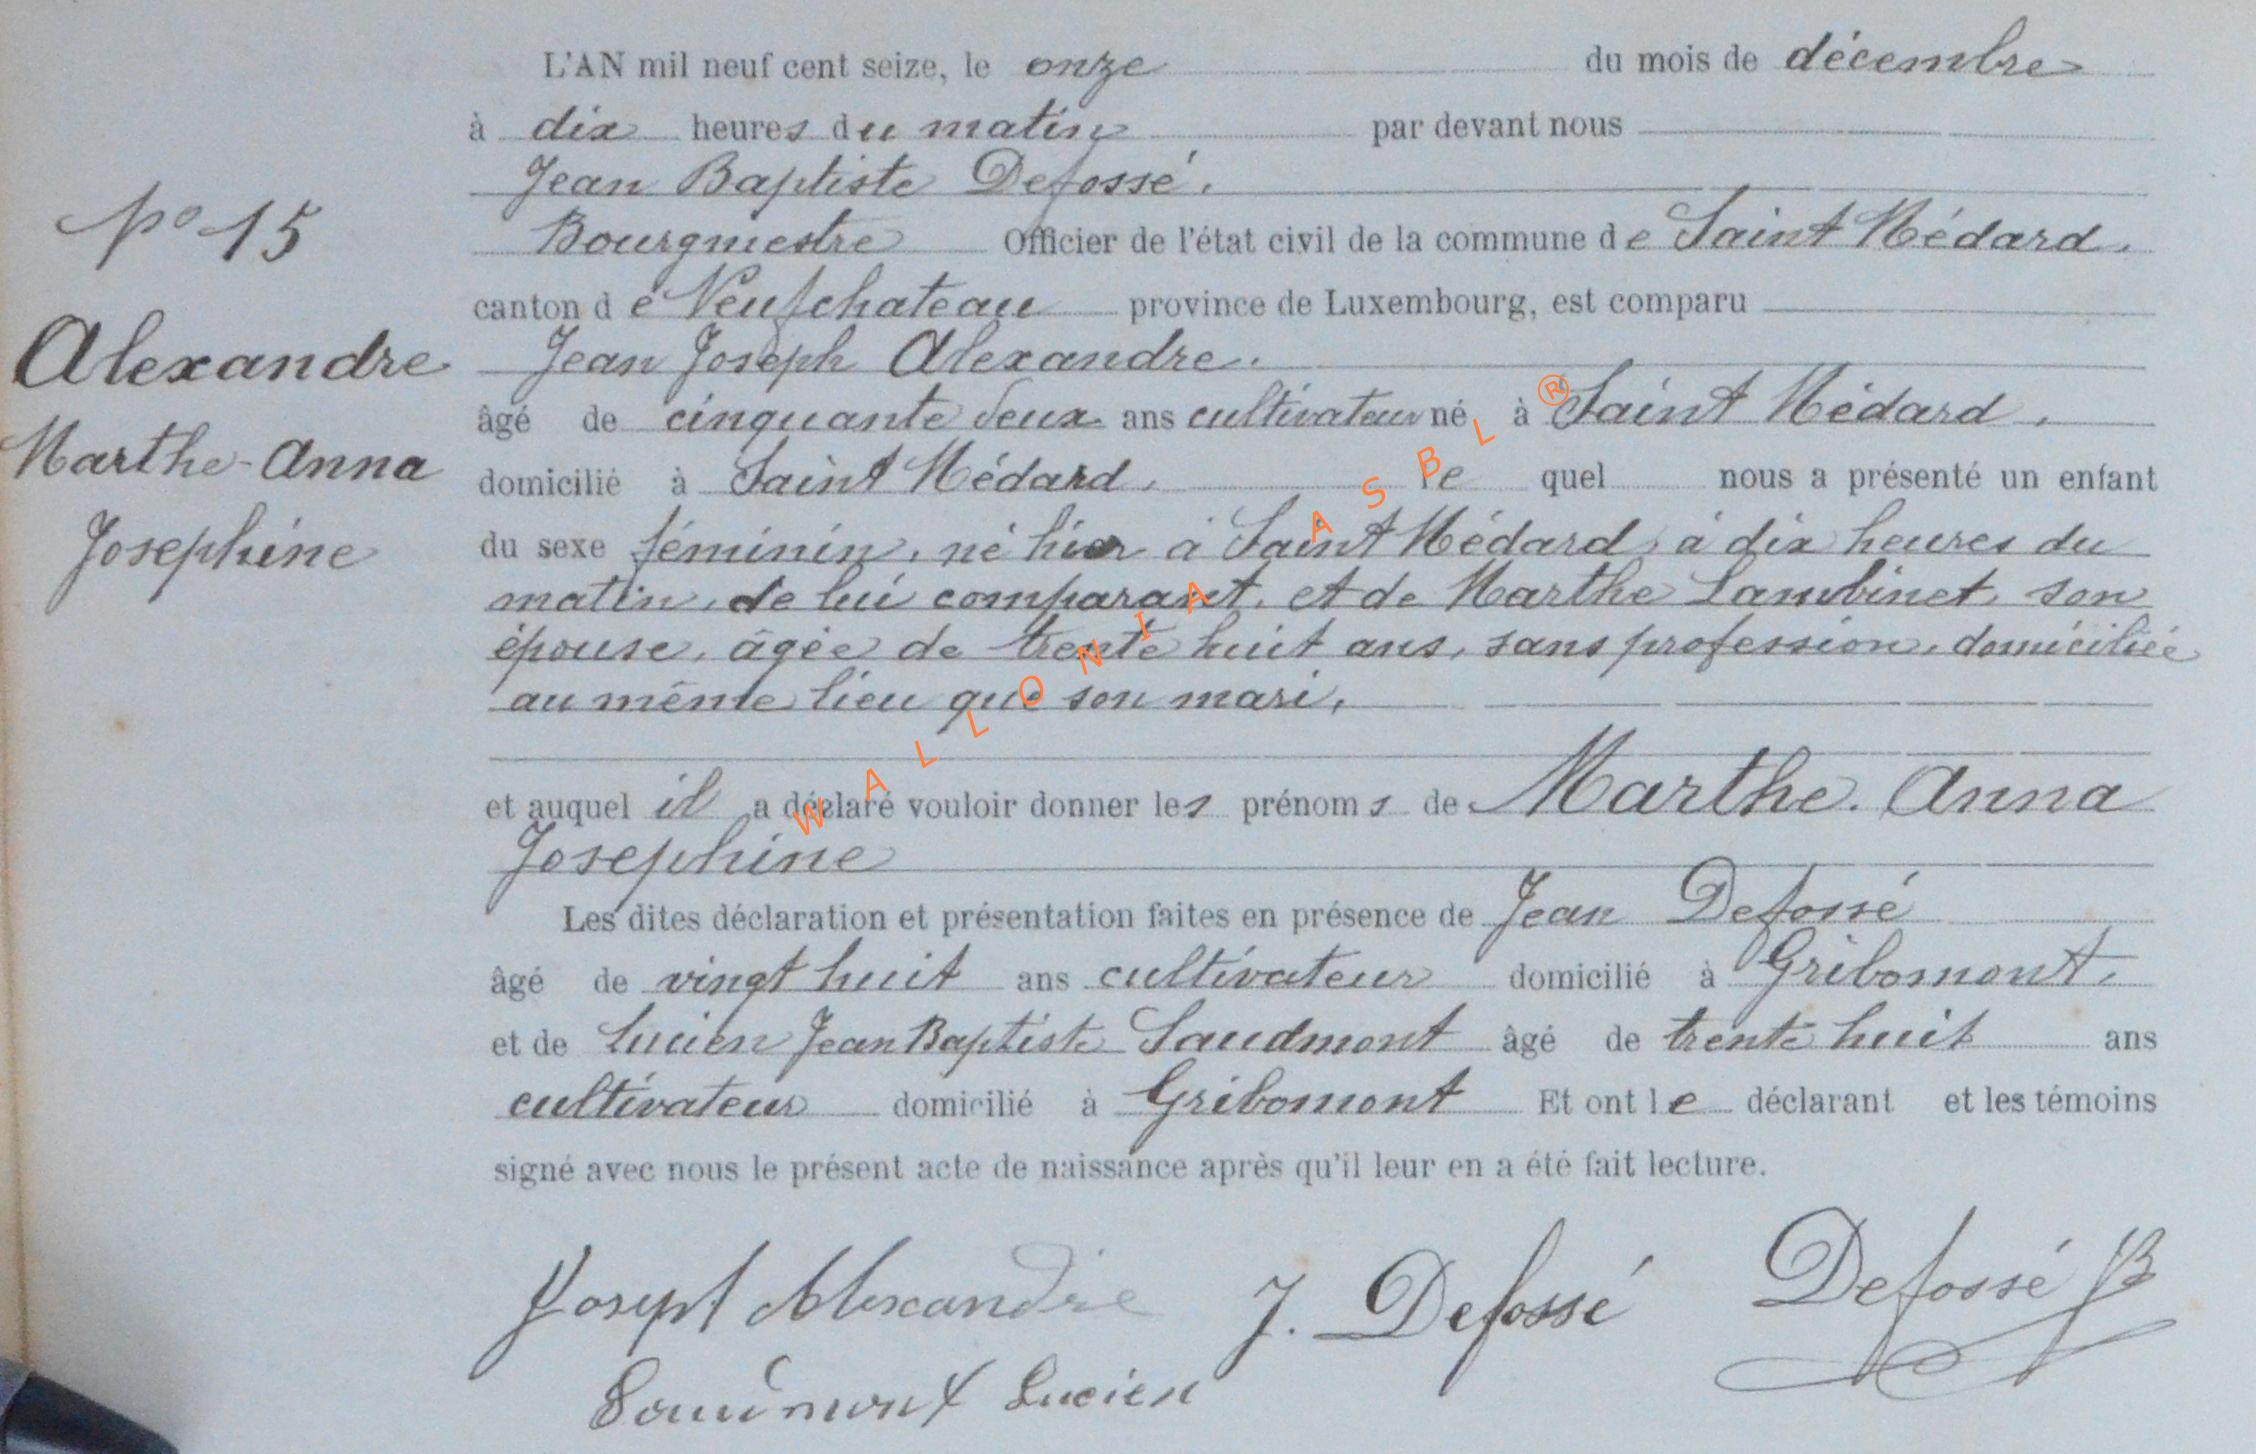 L'AN mil neuf cent seize, le onze du mois de décembre
à dix heures du matin par devant nous
Jean Baptiste Defossé.
Bourgmestre Officier de l'état civil de la commune de Saint Médard.
canton de Neufchateau province de Luxembourg, est comparu
Jean Joseph Alexandre.
âgé de cinquante deux ans cultivateur né à Saint Médard.
domicilié à Saint Médard. le quel nous a présenté un enfant
du sexe féminin, né hier à Saint Médard, à dix heures du
matin, de lui comparant, et de Marthe Lambinet, son
épouse, âgée de trente huit ans, sans profession, domiciliée
au même lieu que son mari,
et auquel il a déclaré vouloir donner les prénoms de Marthe. Anna
Josephine
Les dites déclaration et présentation faites en présence de Jean Defossé
âgé de vingt huit ans cultivateur domicilié à Gribomont.
et de Lucien Jean Baptiste Saudmont âgé de trente huit ans
cultivateur domicilié à Gribomont Et ont le déclarant et les témoins
signé avec nous le présent acte de naissance après qu'il leur en a été fait lecture.
N° 15
Alexandre
Marthe-Anna
Josephine
Joseph Alexandre J. Defossé Defossé JB
Lucien
WALLONIA ASBL ®